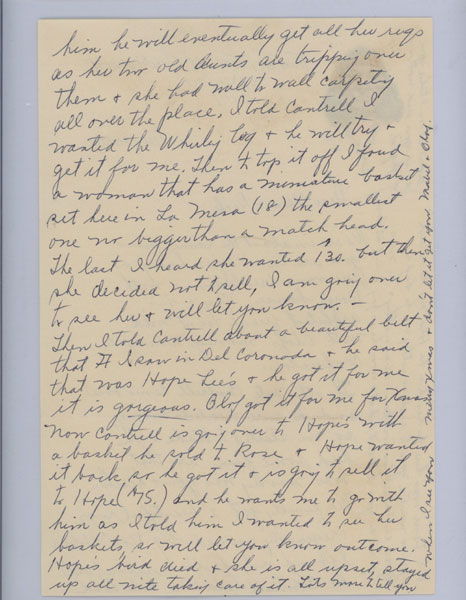 him he will eventually get all her rugs
as her two old Aunts are tripping over
them & she had wall to wall carpeting
all over the place. I told Cantrell I
wanted the Whirly log & he will try &
get it for me. Then to top it off I found
a woman that has a miniature basket
set here in La Mesa (18) the smallest
one no bigger than a match head.
The last I heard she wanted 130. but then
she decided not to sell, I am going over
to see her & will let you know. —
Then I told Cantrell about a beautiful belt
that I saw in Del Coronado & he said
that was Hope Lee's & he got it for me
it is gorgeous. Olof got it for me for Xmas
Now Cantrell is going over to Hope's with
a basket he sold to Rose & Hope wanted
it back so he got it & is going to sell it
to Hope ($75.) and he wants me to go with
him as I told him I wanted to see her
baskets, so will let you know outcome.
Hope's bird died & she is all upset, stayed
up all nite taking care of it. Lots more to tell you
when I see you Merry Xmas & don't let it get you Mabel & Olof.